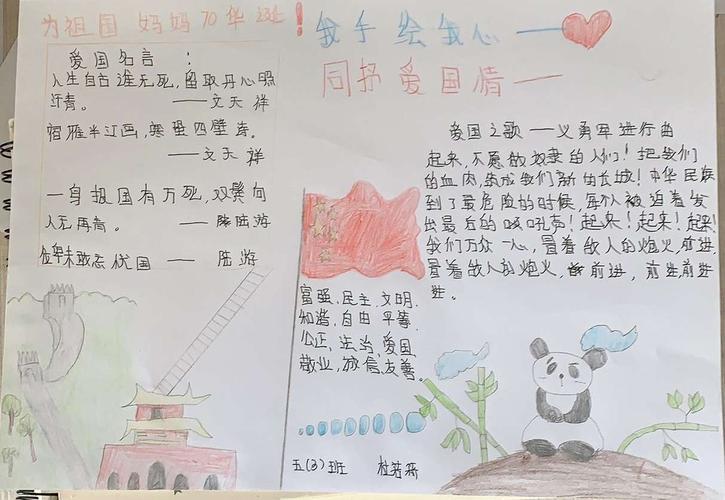 为祖国 妈妈 70华诞!
爱国名言:
人生自古谁无死,留取丹心照
汗青。
——文天祥
宿雁半江画,寒蛩四壁诗。
——文天祥
一身报国有万死,双鬓向
人无再青。——陆游
位卑未敢忘忧国——陆游
我手绘我心——
同抒爱国情——
爱国之歌——义勇军进行曲
起来,不愿做奴隶的人们!把我们
的血肉,筑成我们新的长城!中华民族
到了最危险的时候,每个人被迫着发
出最后的吼声!起来!起来!起来!
我们万众一心,冒着敌人的炮火,前进,
冒着敌人的炮火,前进,前进前进
进。
富强,民主,文明,
和谐,自由 平等,
公正,法治,爱国
敬业,诚信,友善。
五(3)班 杜若